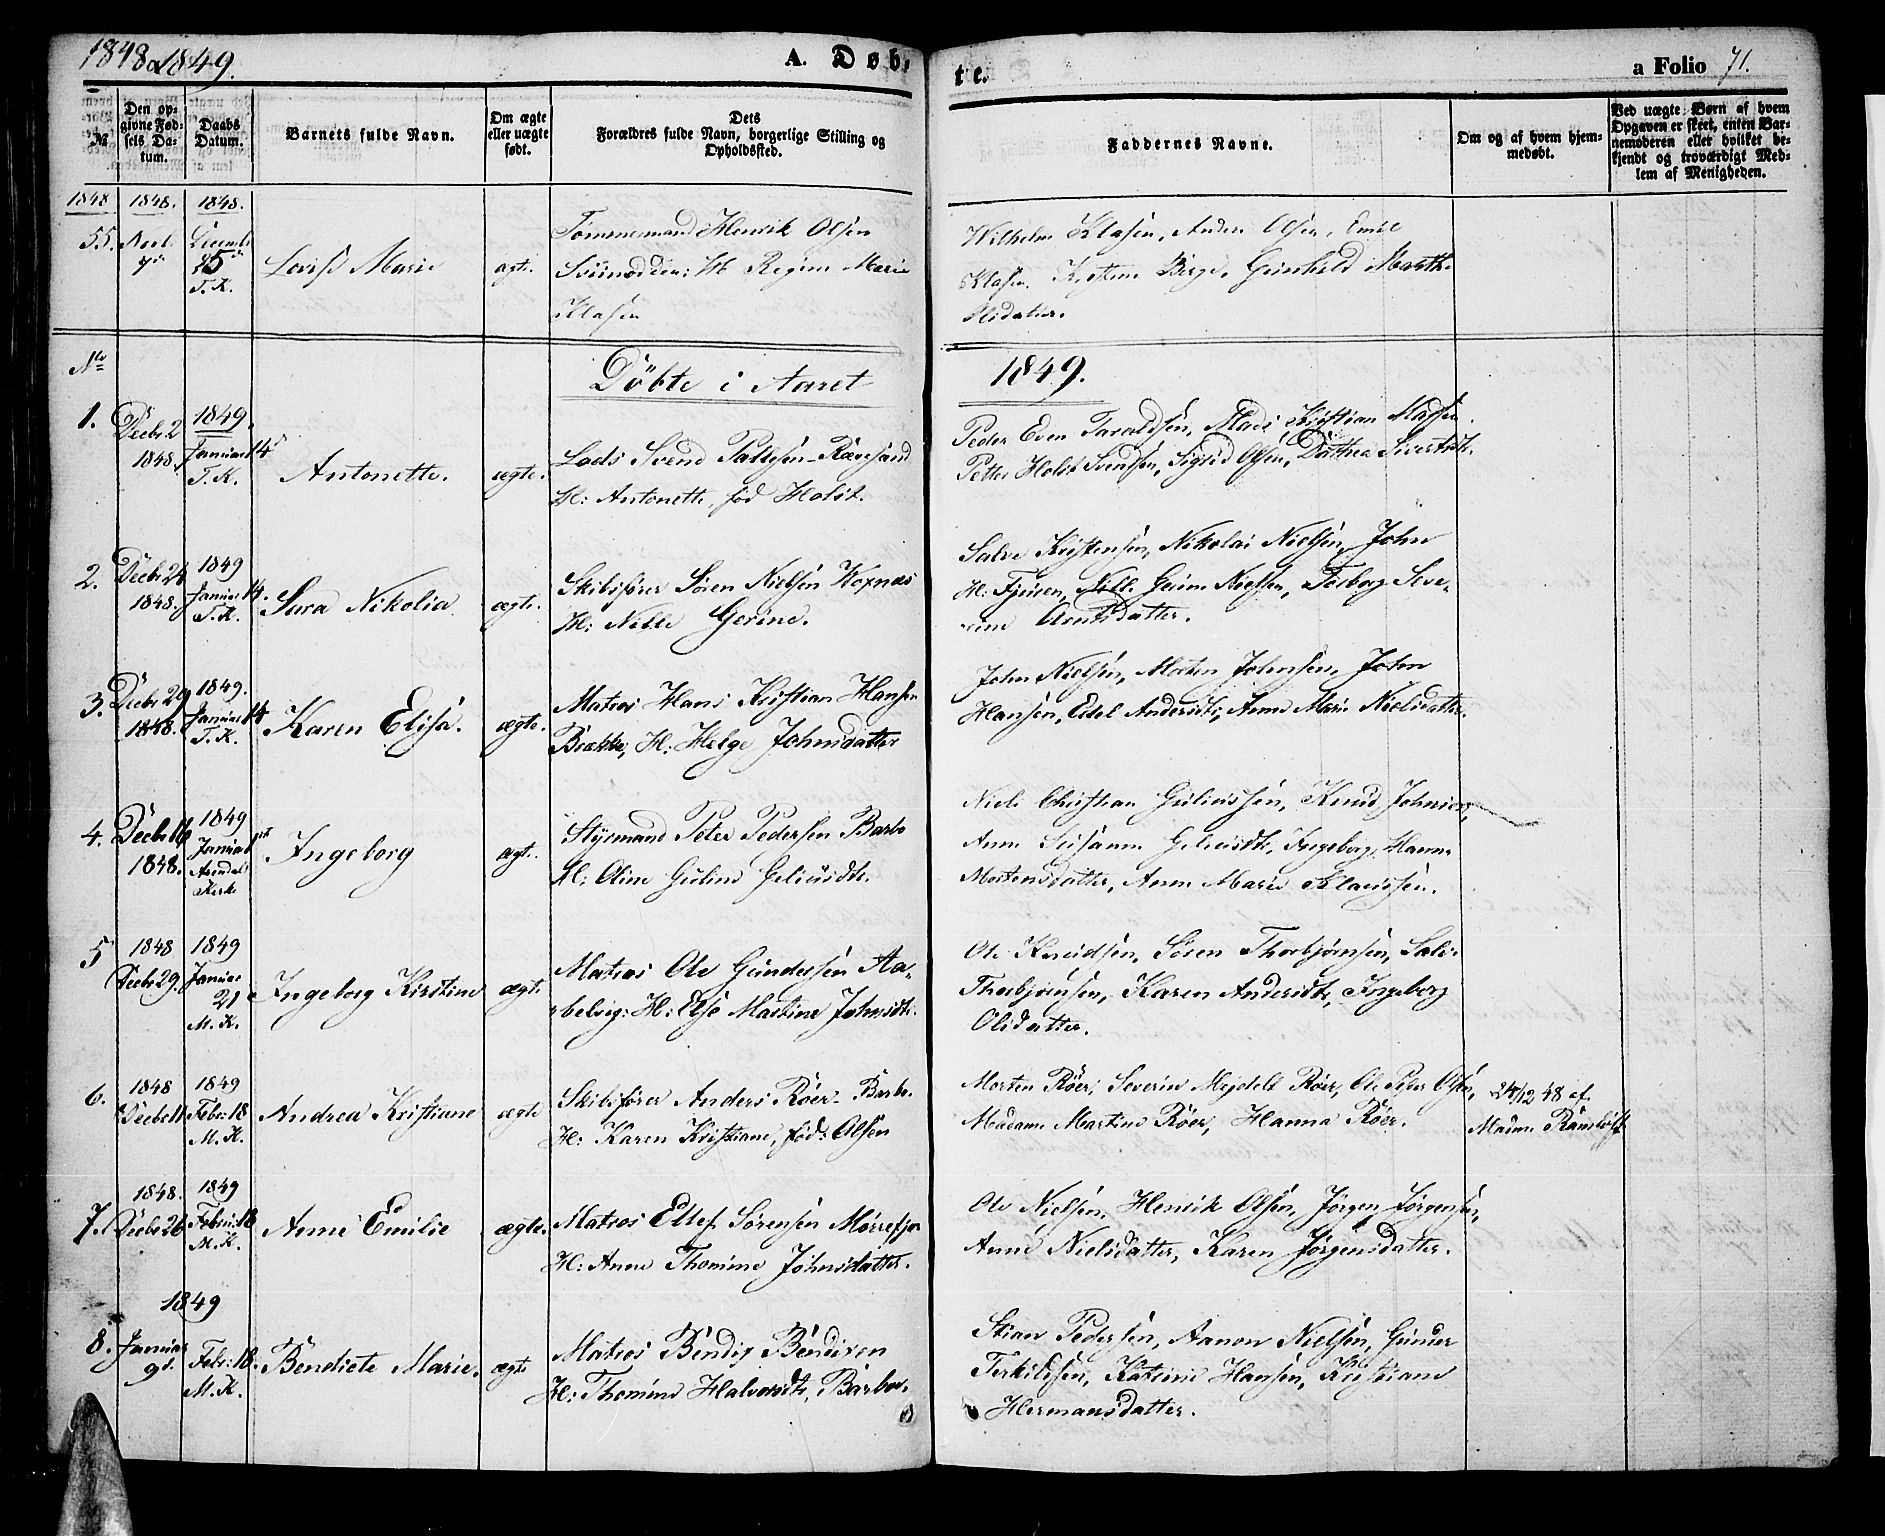 1848 a 1849.
A. Døb-
te.
a Folio 71.
№
Den op-
givne Fød-
sels Da-
tum.
Daabs
Datum.
Barnets fulde Navn.
Om ægte
eller uægte
født.
Dets
Forældres fulde Navn, borgerlige Stilling og
Opholdssted.
Faddernes Navne.
Om og af hvem hjem-
medøbt.
Ved uægte Børn af hvem
Opgaven er skeet, enten Bar-
nemoderen eller hvilket be-
kjendt og troværdigt Med-
lem af Menigheden.
1848 1848. 1848.
55.
T. K.
Marie
ægte.
Tømmermand Henrik Olsen
H Regine Marie
Klasen
Wilhelm Klasen, Anders Olsen, Emil
Klasen, Gunhild Marth.
Olsdatter.
No
Döbte i Aaret
1849.
1.
Decbr 2
1848.
1849.
Januar 14
T. K.
Antonette.
ægte.
Lods Svend Pallesen Rævesand
H: Antonette, fød Holst.
Peder Even Taraldsen, Mads Kristian Madsen
Petter Holst Svendsen, Sigrid Olsen, Dorthea
2.
Decbr 24
1848.
1849
Januar 14.
T. K.
Sara Nikolia
ægte.
Skibsfører Søren Nielsen
H: Nille Gerine.
Salve Kristensen, Nikolai Nielsen, John
H: Nille Nielsen, Torborg Seve-
rine Arntsdatter.
3.
Decbr 29
1848.
1849.
Januar 14
T. K.
Karen Elisa.
ægte.
Matros Hans Kristian Hansen
Brække, H: Helge Johnsdatter
John Nielsen, Morten Johnsen, John
Hansen, Edel Andersdtr, Anne Marie Nielsdatter.
4.
Decbr 16
1848.
1849
Januar 1st
Arendal
Kirk
Ingeborg
ægt.
Styrmand Peter Pedersen Barbo
H: Oline
Niels Christian Knud Johnsen,
Anne Susanne Ingeborg Hanne
Mortensdatter, Anne Marie Klausen.
5
1848
Decbr 29.
1849
Januar
21
M. K.
Ingeborg Kirstine
ægt.
Matros Ole Gundersen Aa-
H: Else Martine Johnsdtr.
Ole Knudsen, Søren Thorbjørnsen, Salve
Thorbjørnsen, Karen Andersdtr, Ingeborg
Olsdatter.
6.
1848
Decbr 11
1849
Febr: 18
M. K.
Andrea Kristiane
ægte
Skibsfører Anders Röer Barbo.
H: Karen Kristiane, fød: Olsen
Morten Röer, Severin Mejdell Röer, Ole Peder Olsen,
Madame Martine Röer, Hanna Röer.
24/12 48 af
Madm.
7.
1848.
Decbr 26
1849
Febru: 18
M. K.
Anne Emilie
ægte.
Matros Ellef Sørensen Mørrefjær
H: Anne Thomine Johnsdatter.
Ole Nielsen, Henrik Olsen, Jørgen Jørgensen,
Anne Nielsdatter, Karen Jørgensdatter.
1849
8.
Januar
9d.
Febr: 18.
M. K.
Bendicte Marie.
ægte
Matros Bendix Bendixen
H: Thomine Halvorsdtr, Barbo.
Stian Pedersen, Aanon Nielsen, Gunder
Terkildsen, Katrine Hansen, Kristiane
Hermansdatter.